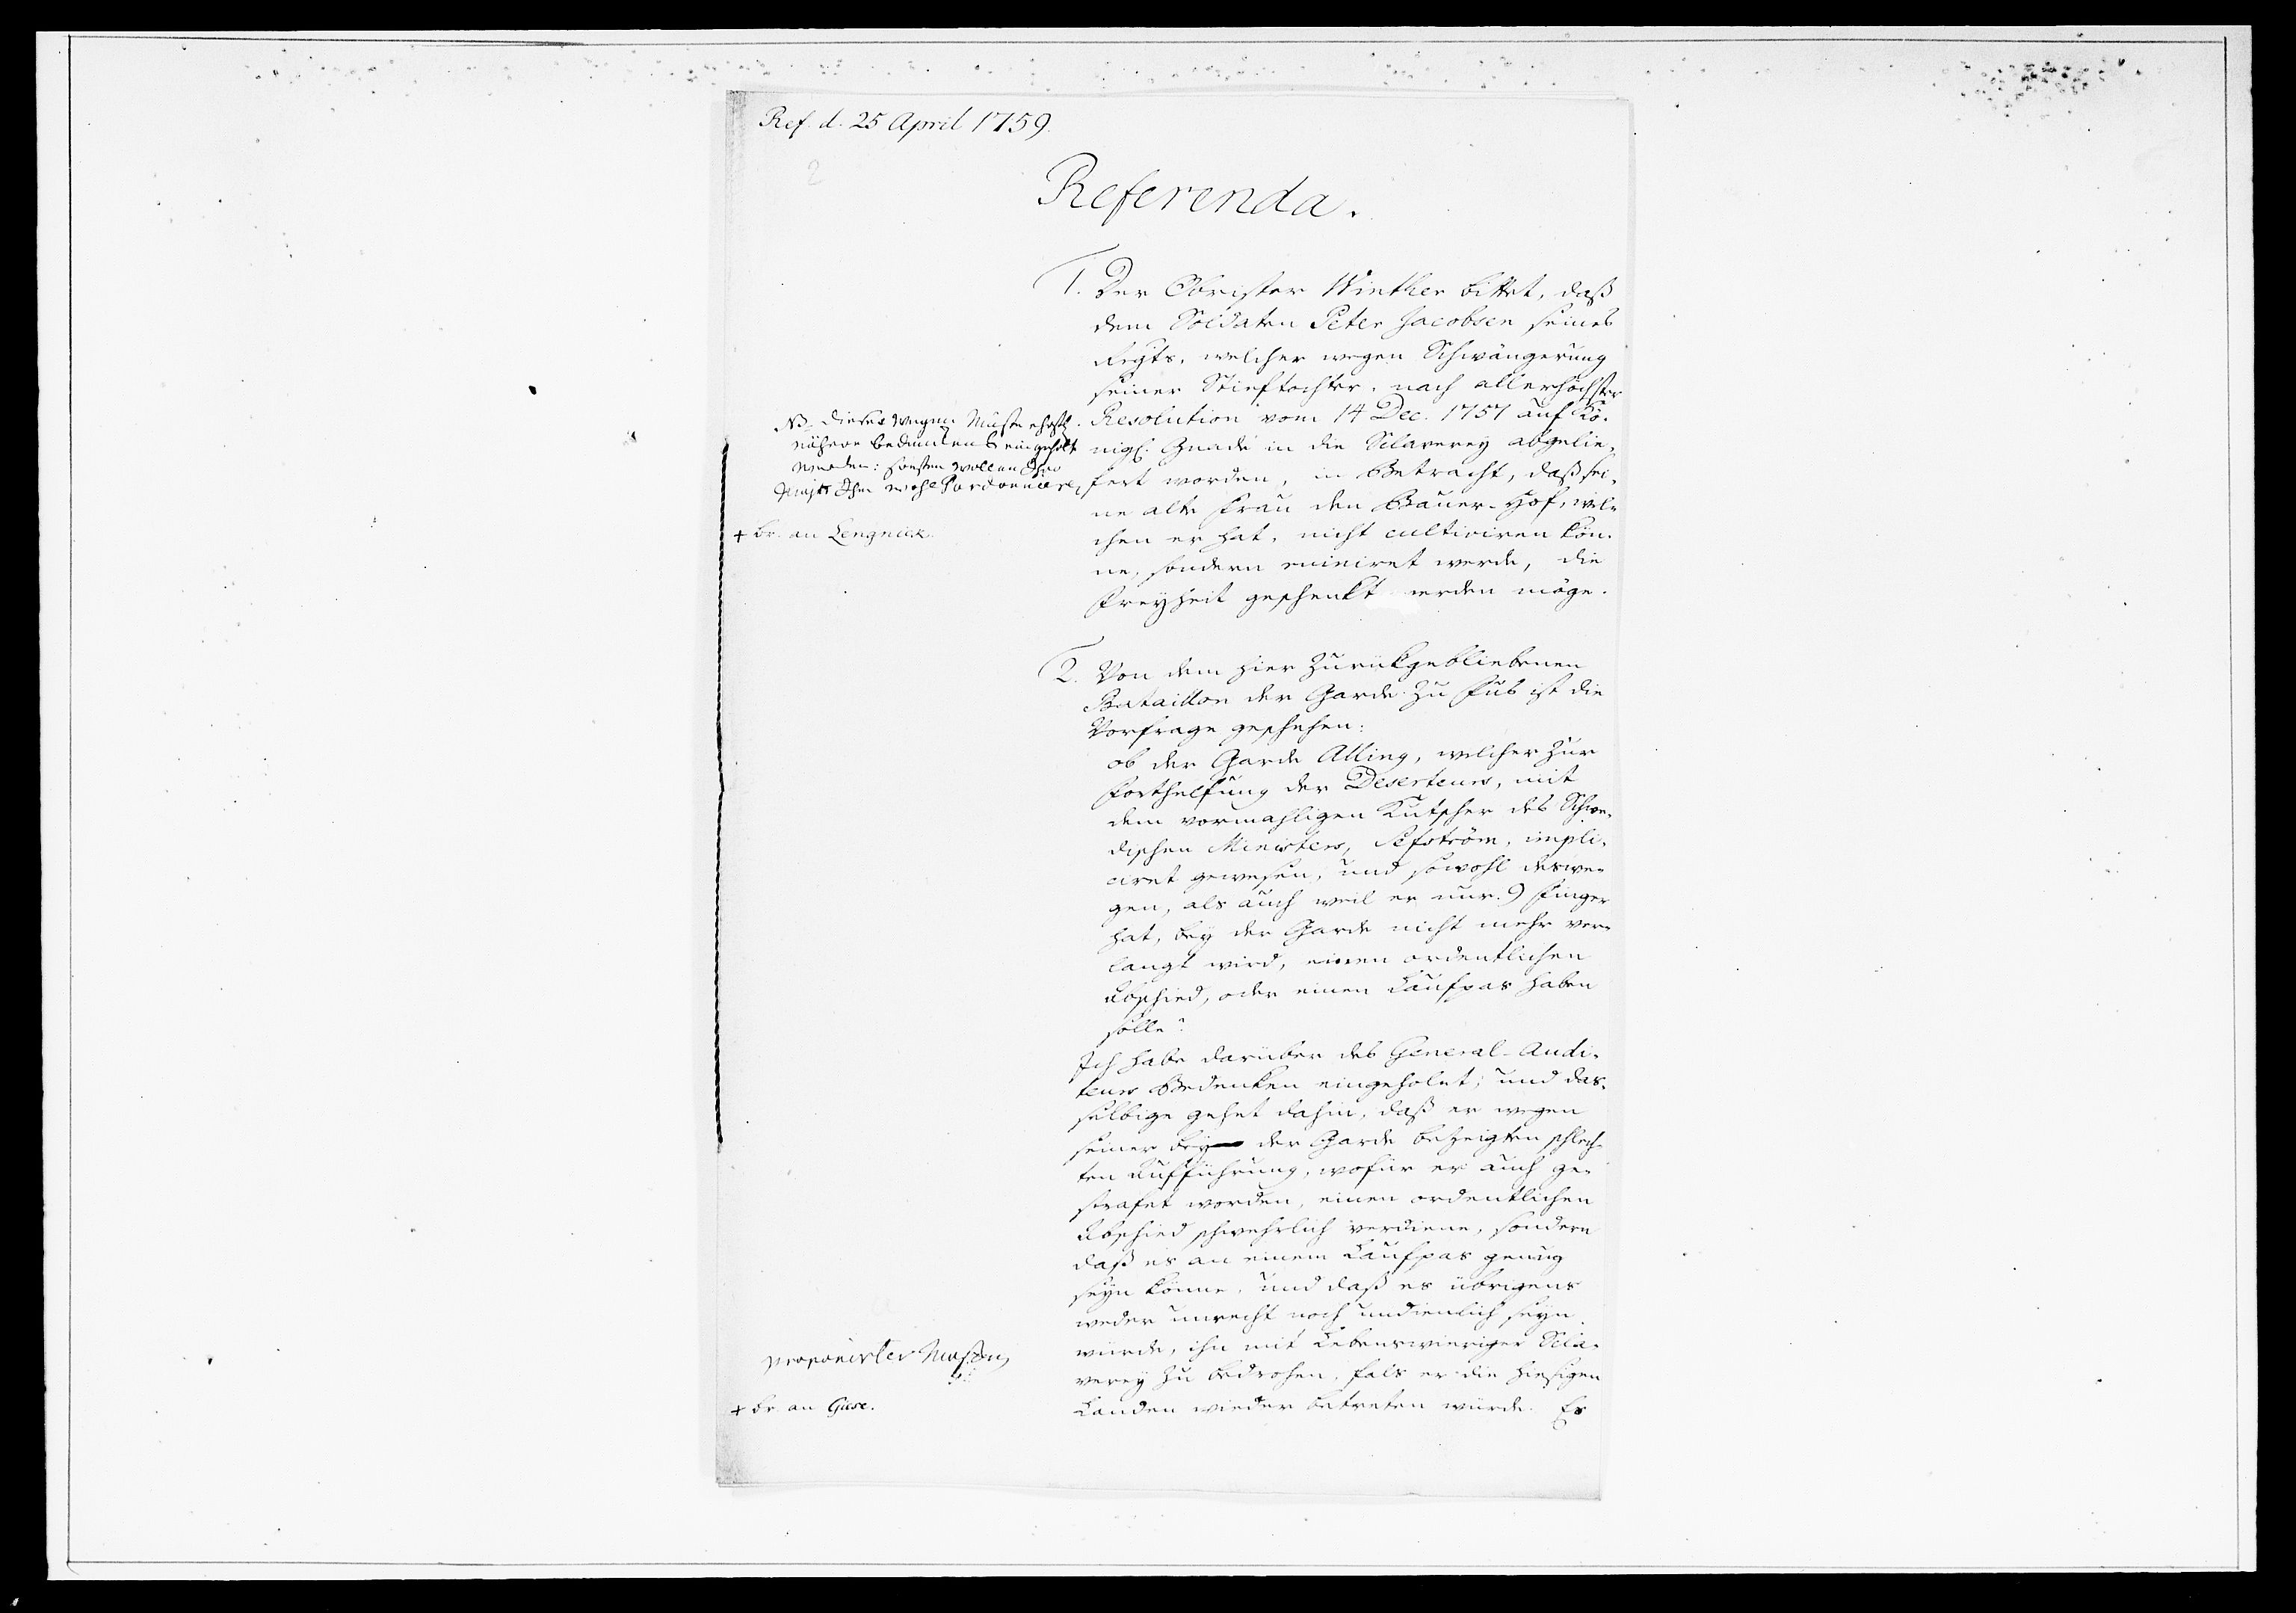 Ref. d. 25 April 1759.
2
Referenda.
1. Der Obrister Winther bittet, daß
dem Soldaten Peter Jacobsen seines
Regts, welcher wegen Schwängerung
seiner Stieftochter, nach allerhöchster
Resolution vom 14 Dec. 1757 auf Kö-
nigl. Gnade in die Sclaverey abgelie-
fert worden, in Betracht, daß sei-
ne alte Frau den Bauer-Hof, wel-
chen er hat, nicht cultiviren kön-
ne, sondern ruiniret werde, die
Freyheit geschenkt werden möge.
NB. dieser wegen Müste
nähere Bedencken eingeholt
werden: sonsten wollen Ihro
Majtt Ihn wohl Pardonniere
+ br. an Lengnick.
2. Von dem hier zurückgebliebenen
Bataillon der Garde zu Fus ist die
Vorfrage geschehen:
ob der Garde Alling, welcher zur
Forthelfung der Deserteurs, mit
dem vormahligen Kutscher des Schwe-
dischen Ministers, Sefström, impli-
ciret gewesen, und sowohl deswe-
gen, als auch weil er nur 9 Finger
hat, bey der Garde nicht mehr ver-
langt wird, einen ordentlichen
Abschied, oder einen Laufpas haben
solle?
Ich habe darüber des General-Audi-
teurs Bedenken eingeholet; und das-
selbige gehet dahin, daß er wegen
seiner bey der Garde bezeigten schlech-
ten Aufführung, wofür er auch ge-
strafet worden, einen ordentlichen
Abschied schwehrlich verdiene, sondern
daß es an einem Laufpas genug
seyn könne, und daß es übrigens
weder unrecht noch undienlich seyn
würde, ihn mit Lebenswieriger Scla-
verey zu bedrohen, fals er die hiesigen
Landen wieder betreten würde. Es
proponirter Maßen
+ br. an Giese.